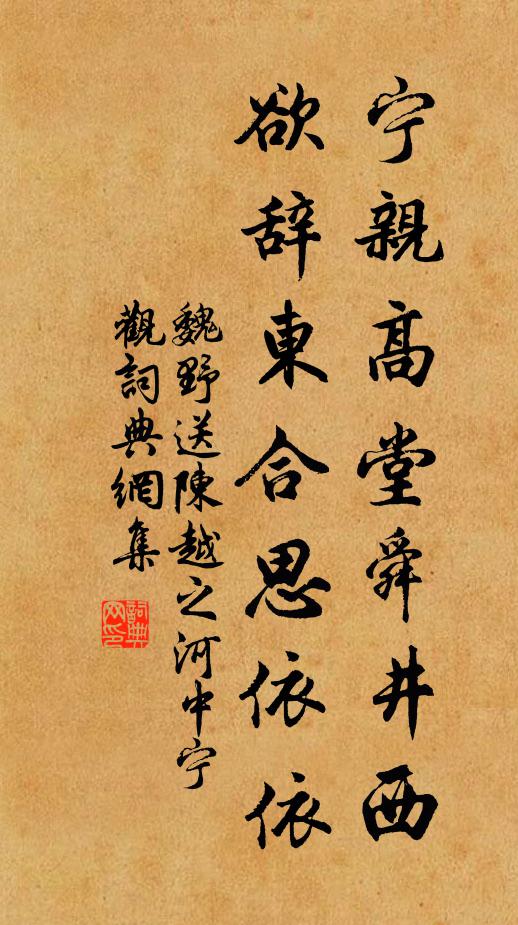 宁親高堂舜井西
欲辞東合思依依
魏野送陳越之河中宁
觀詞典網集
詞典网印